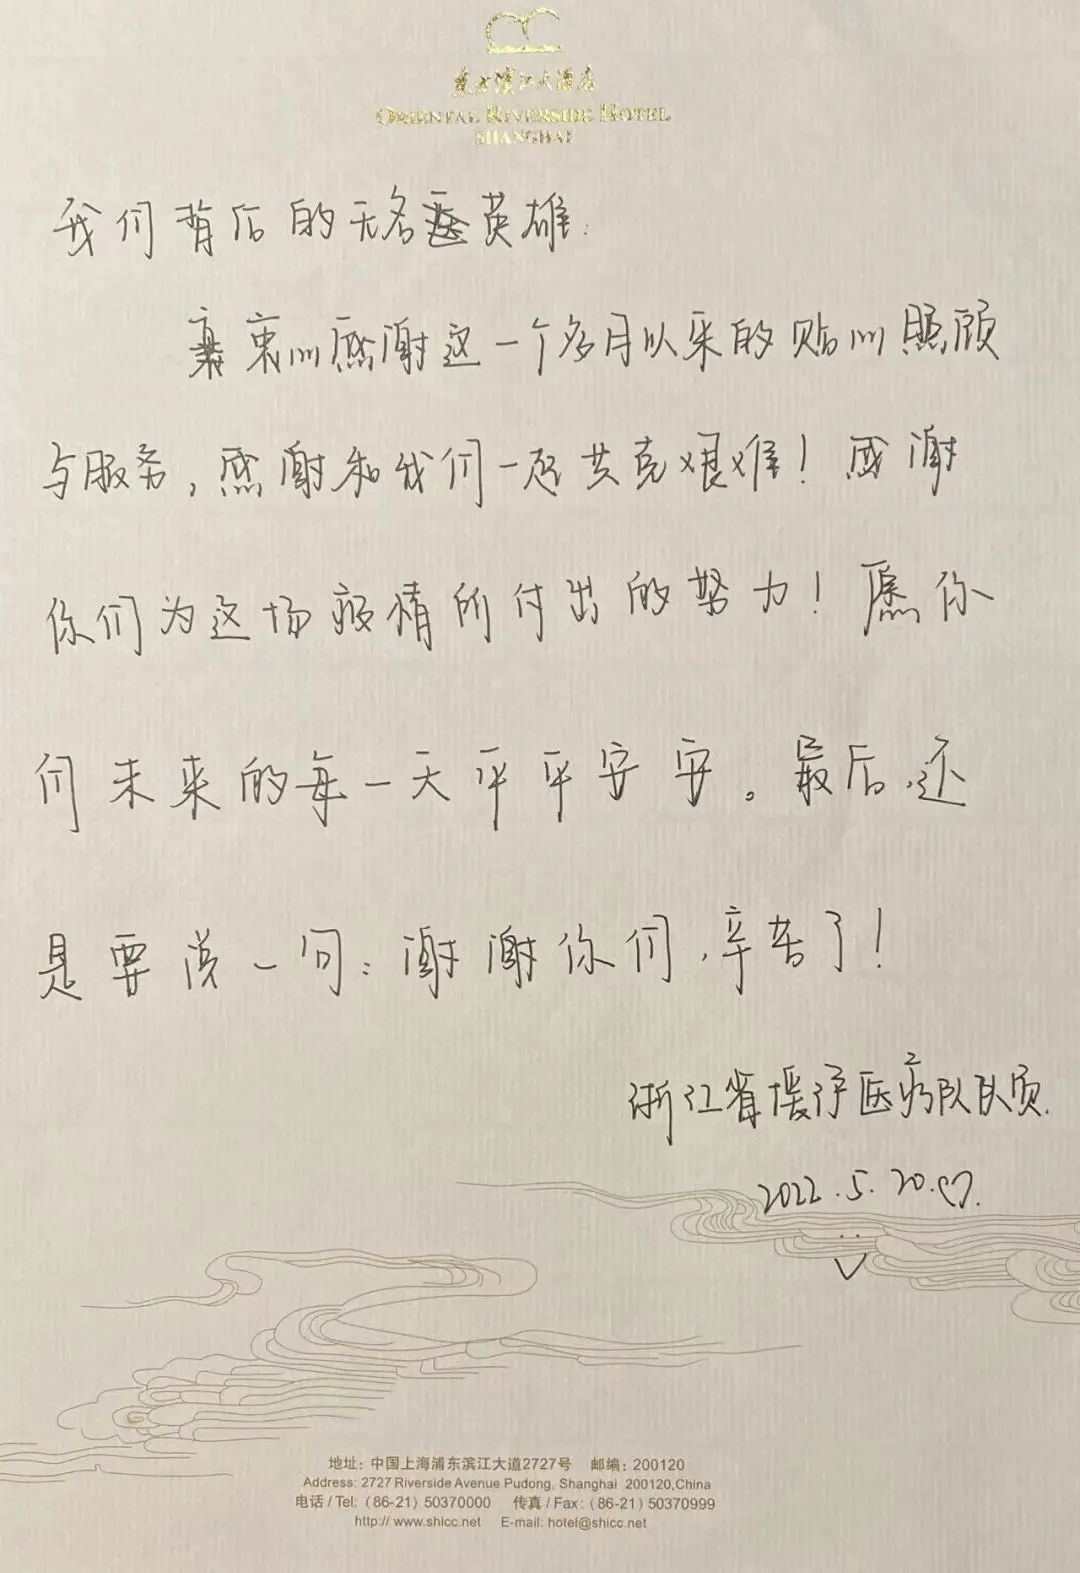 东方滨江大酒店
ORIENTAL RIVERSIDE HOTEL
SHANGHAI
我们背后的无名英雄:
衷心感谢这一个多月以来的贴心照顾
与服务,感谢和我们一起共克艰难!感谢
你们为这场疫情所付出的努力!愿你
们未来的每一天平平安安。最后,还
是要说一句:谢谢你们,辛苦了!
浙江省援沪医疗队队员.
2022.5.20.
地址:中国上海浦东滨江大道2727号 邮编:200120
Address: 2727 Riverside Avenue Pudong, Shanghai 200120,China
电话 / Tel: (86-21) 50370000 传真 / Fax: (86-21) 50370999
http:// www.shicc.net E-mail: hotel@shicc.net